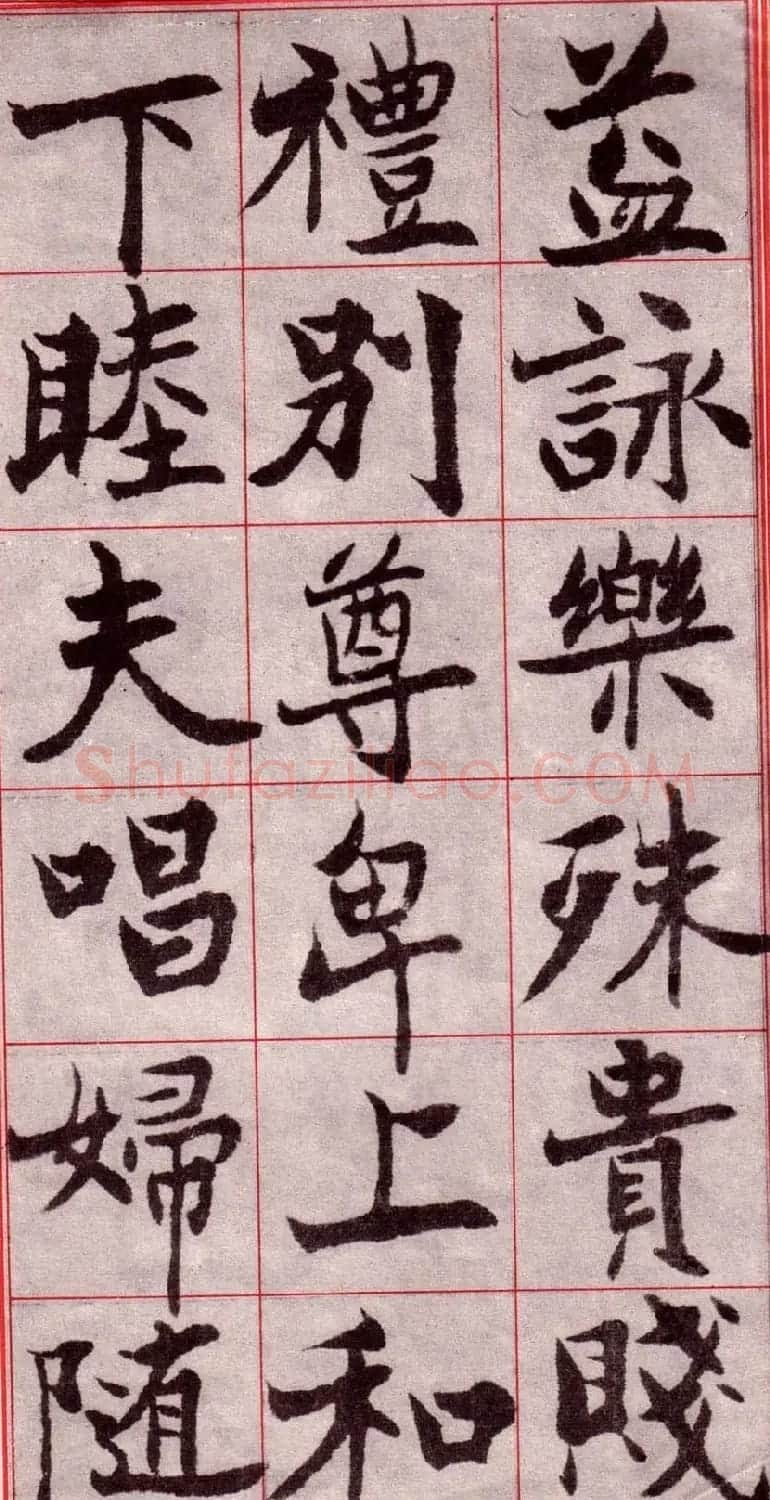 益詠樂殊貴賤
禮別尊卑上和
下睦夫唱婦随
Shufaziliao.COM